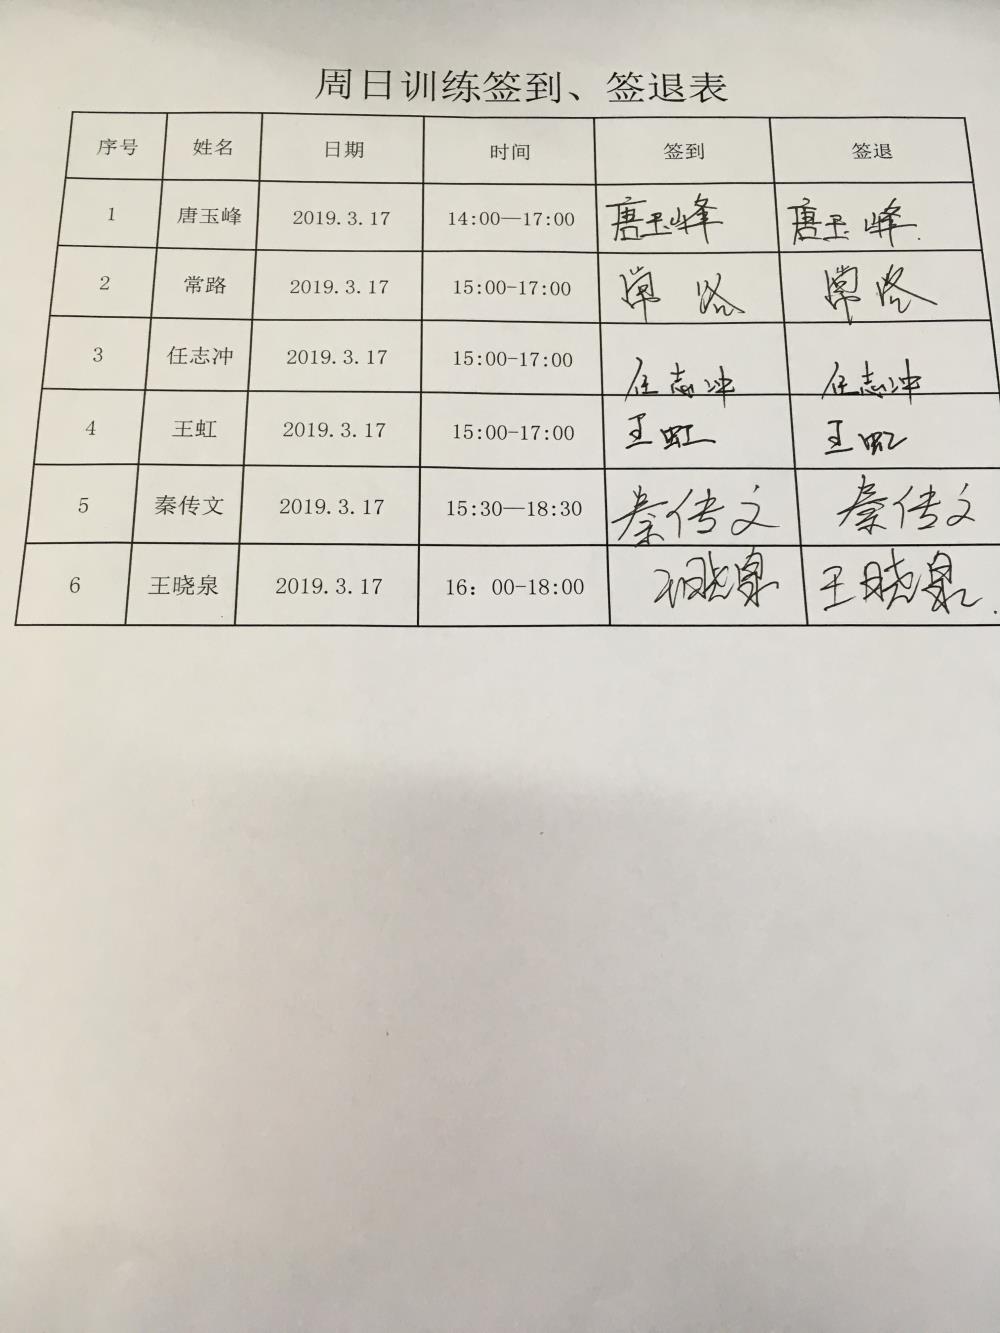 周日训练签到、签退表
序号 姓名 日期 时间 签到 签退
1 唐玉峰 2019.3.17 14:00—17:00 唐玉峰 唐玉峰.
2 常路 2019.3.17 15:00-17:00 常路 常路
3 任志冲 2019.3.17 15:00-17:00 任志冲 任志冲
4 王虹 2019.3.17 15:00-17:00 王虹 王虹
5 秦传文 2019.3.17 15:30—18:30 秦传文 秦传文
6 王晓泉 2019.3.17 16：00-18:00 王晓泉 王晓泉.